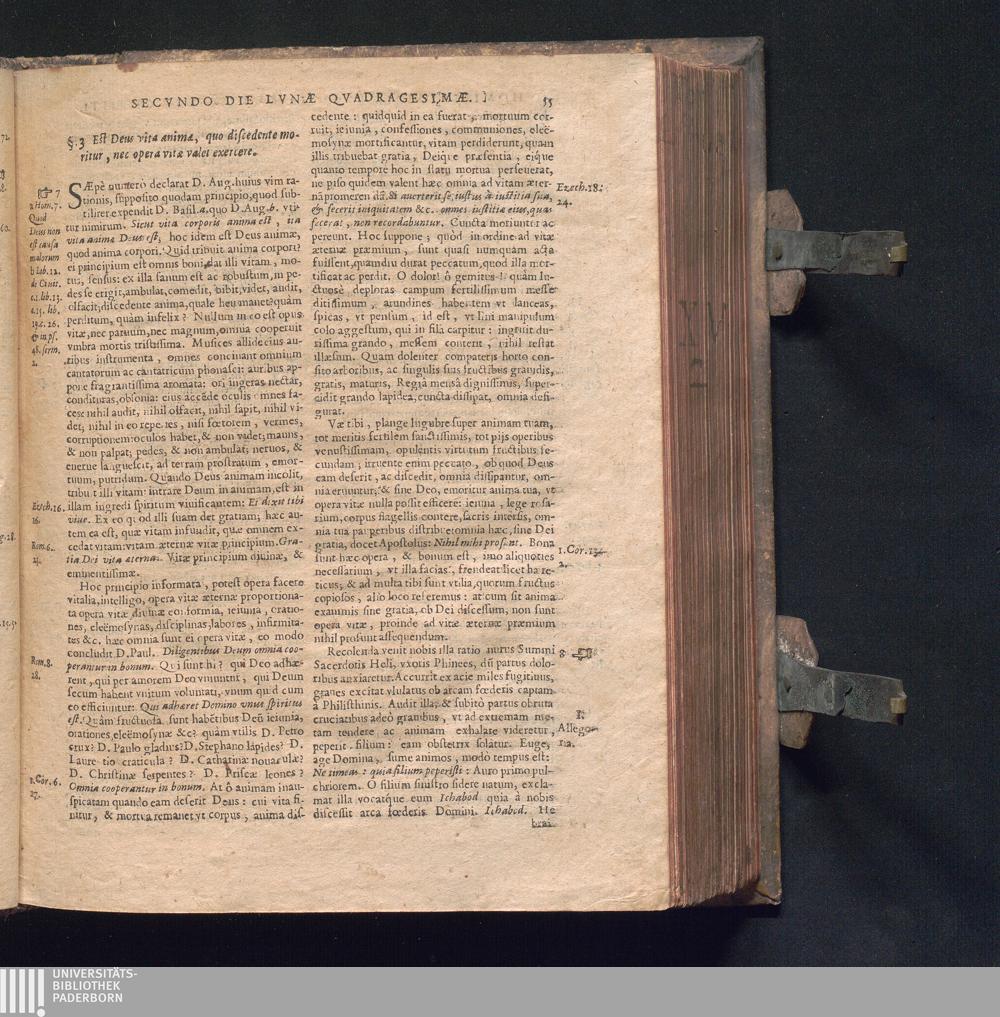 SECVNDO DIE LVNÆ QVADRAGESIMÆ. 55
§. 3 Est Deus vita animæ, quo discedente mo-
ritur, nec opera vitæ valet exercere.
SÆpè numerò declarat D. Aug. huius vim ra-
tionis, supposito quodam principio, quod sub-
tiliter expendit D. Basil. a. quo D. Aug. b. vti-
tur nimirum. Sicut vita corporis anima est, ita
vita animæ Deus est; hoc idem est Deus animæ,
quod anima corpori. Quid tribuit anima corpori?
ei principium est omnis boni, dat illi vitam, mo-
tus, sensus: ex illa sanum est ac robustum, in pe-
des se erigit, ambulat, comedit, bibit, videt, audit,
olfacit; discedente anima, quale heu manet? quàm
perditum, quàm infelix? Nullum in eo est opus
vitæ, nec paruum, nec magnum, omnia cooperuit
vmbra mortis tristissima. Musices allide eius au-
ribus instrumenta, omnes concinant omnium
cantatorum ac cantatricum phonasci: auribus ap-
pone fragrantissima aromata: ori ingeras nectar,
condituras, obsonia: eius accéde oculis omnes fa-
ces: nihil audit, nihil olfacit, nihil sapit, nihil vi-
det; nihil in eo reperies, nisi fœtorem, vermes,
corruptionem: oculos habet, & non videt; manus,
& non palpat; pedes, & non ambulat; neruos, &
enerue languescit, ad terram prostratum, emor-
tuum, putridum. Quando Deus animam incolit,
tribuit illi vitam: intrare Deum in animam, est in
illam ingredi spiritum viuificantem: Ei dixit tibi
viue. Ex eo quod illi suam det gratiam; hæc au-
tem ea est, quæ vitam infundit, quæ omnem ex-
cedat vitam: vitam æternæ vitæ principium. Gra-
tia Dei vita æterna. Vitæ principium diuinæ, &
eminentissimæ.
Hoc principio informata, potest opera facere
vitalia, intelligo, opera vitæ æternæ proportiona-
ta opera vitæ diuinæ conformia, ieiunia, oratio-
nes, eleëmosynas, disciplinas, labores, infirmita-
tes &c. hæc omnia sunt ei opera vitæ, eo modo
concludit D. Paul. Diligentibus Deum omnia coo-
perantur in bonum. Qui sunt hi? qui Deo adhæ-
rent, qui per amorem Deo vniuntur, qui Deum
secum habent vnitum voluntati, vnum quid cum
eo efficiuntur: Qui adhæret Domino vnus spiritus
est. Quàm fructuosa sunt habētibus Deū ieiunia,
orationes, eleëmosynæ &c? quàm vtilis D. Petro
crux? D. Paulo gladius? D. Stephano lapides? D.
Laurentio craticula? D. Catharinæ nouaculæ?
D. Christinæ serpentes? D. Priscæ leones?
Omnia cooperantur in bonum. At ô animam inau-
spicatam quando eam deserit Deus: cui vita fi-
nitur, & mortua remanet vt corpus, anima dis-
7
a Hom. 7.
Quod
Deus non
est causa
malorum
b lib. 12.
de Ciuit.
c. 1. lib. 13.
c. 15. lib.
19. c. 26.
& in ps.
48. serm.
2.
Ezech. 16.
16.
Rom. 6.
21.
Rom. 8.
28.
1. Cor. 6.
27.
cedente: quidquid in ea fuerat, mortuum cor-
ruit, ieiunia, confessiones, communiones, eleë-
mosynæ mortificantur, vitam perdiderunt, quam
illis tribuebat gratia, Deique præsentia; eique
quanto tempore hoc in statu mortua perseuerat,
ne piso quidem valent hæc omnia ad vitam æter-
nā promerendā. Si auerterit se, iustus à iustitia sua,
& fecerit iniquitatem &c. omnes iustitiæ eius, quas
fecerat, non recordabuntur. Cuncta moriuntur ac
pereunt. Hoc suppone; quòd in ordine ad vitæ
æternæ præmium, sunt quasi numquam acta
fuissent, quamdiu durat peccatum, quod illa mor-
tificat ac perdit. O dolor! ô gemitus! quàm lu-
ctuosè deploras campum fertilissimum messe
ditissimum, arundines habentem vt lanceas,
spicas, vt pensum, id est, vt lini manipulum
colo aggestum, qui in fila carpitur: ingruit du-
rissima grando, messem conterit, nihil restat
illæsum. Quam dolenter compateris horto con-
sito arboribus, ac singulis suis fructibus grandis,
gratis, maturis, Regiâ mensâ dignissimis, super-
cidit grando lapidea, cuncta dissipat, omnia desi-
gurat.
Væ tibi, plange lugubre super animam tuam,
tot meritis fertilem sanctissimis, tot pijs operibus
venustissimam, opulentis virtutum fructibus fe-
cundam; irruente enim peccato, ob quod Deus
eam deserit, ac discedit, omnia dissipantur, om-
nia eruuntur; & sine Deo, emoritur anima tua, vt
opera vitæ nulla possit efficere: ieiuna, lege rosa-
rium, corpus flagellis contere, sacris intersis, om-
nia tua pauperibus distribue: omnia hæc, sine Dei
gratia, docet Apostolus: Nihil mihi prosunt. Bona
sunt hæc opera, & bonum est, imo aliquoties
necessarium, vt illa facias, frendeat licet hære-
ticus; & ad multa tibi sunt vtilia, quorum fructus
copiosos, alio loco referemus: at cum sit anima
exanimis sine gratia, ob Dei discessum, non sunt
opera vitæ, proinde ad vitæ æternæ præmium
nihil prosunt assequendum.
Recolenda venit nobis illa ratio nurus Summi
Sacerdotis Heli, vxoris Phinees, dū partus dolo-
ribus anxiaretur. Accurrit ex acie miles fugitiuus,
graues excitat vlulatus ob arcam fœderis captam
à Philisthinis. Audit illa, & subitò partus obruta
cruciatibus adeò grauibus, vt ad extremam me-
tam tendere ac animam exhalare videretur,
peperit filium: eam obstetrix solatur. Euge,
age Domina, sume animos, modò tempus est:
Ne timeas: quia filium peperisti: Auro primo pul-
chriorem. O filium sinistro sidere natum, excla-
mat illa vocatque eum Ichabod quia à nobis
discessit arca fœderis Domini. Ichabod. He
brai-
Ezech. 18.
24.
1. Cor. 13.
2.
8
Allego-
ria.
XV
UNIVERSITÄTS-
BIBLIOTHEK
PADERBORN